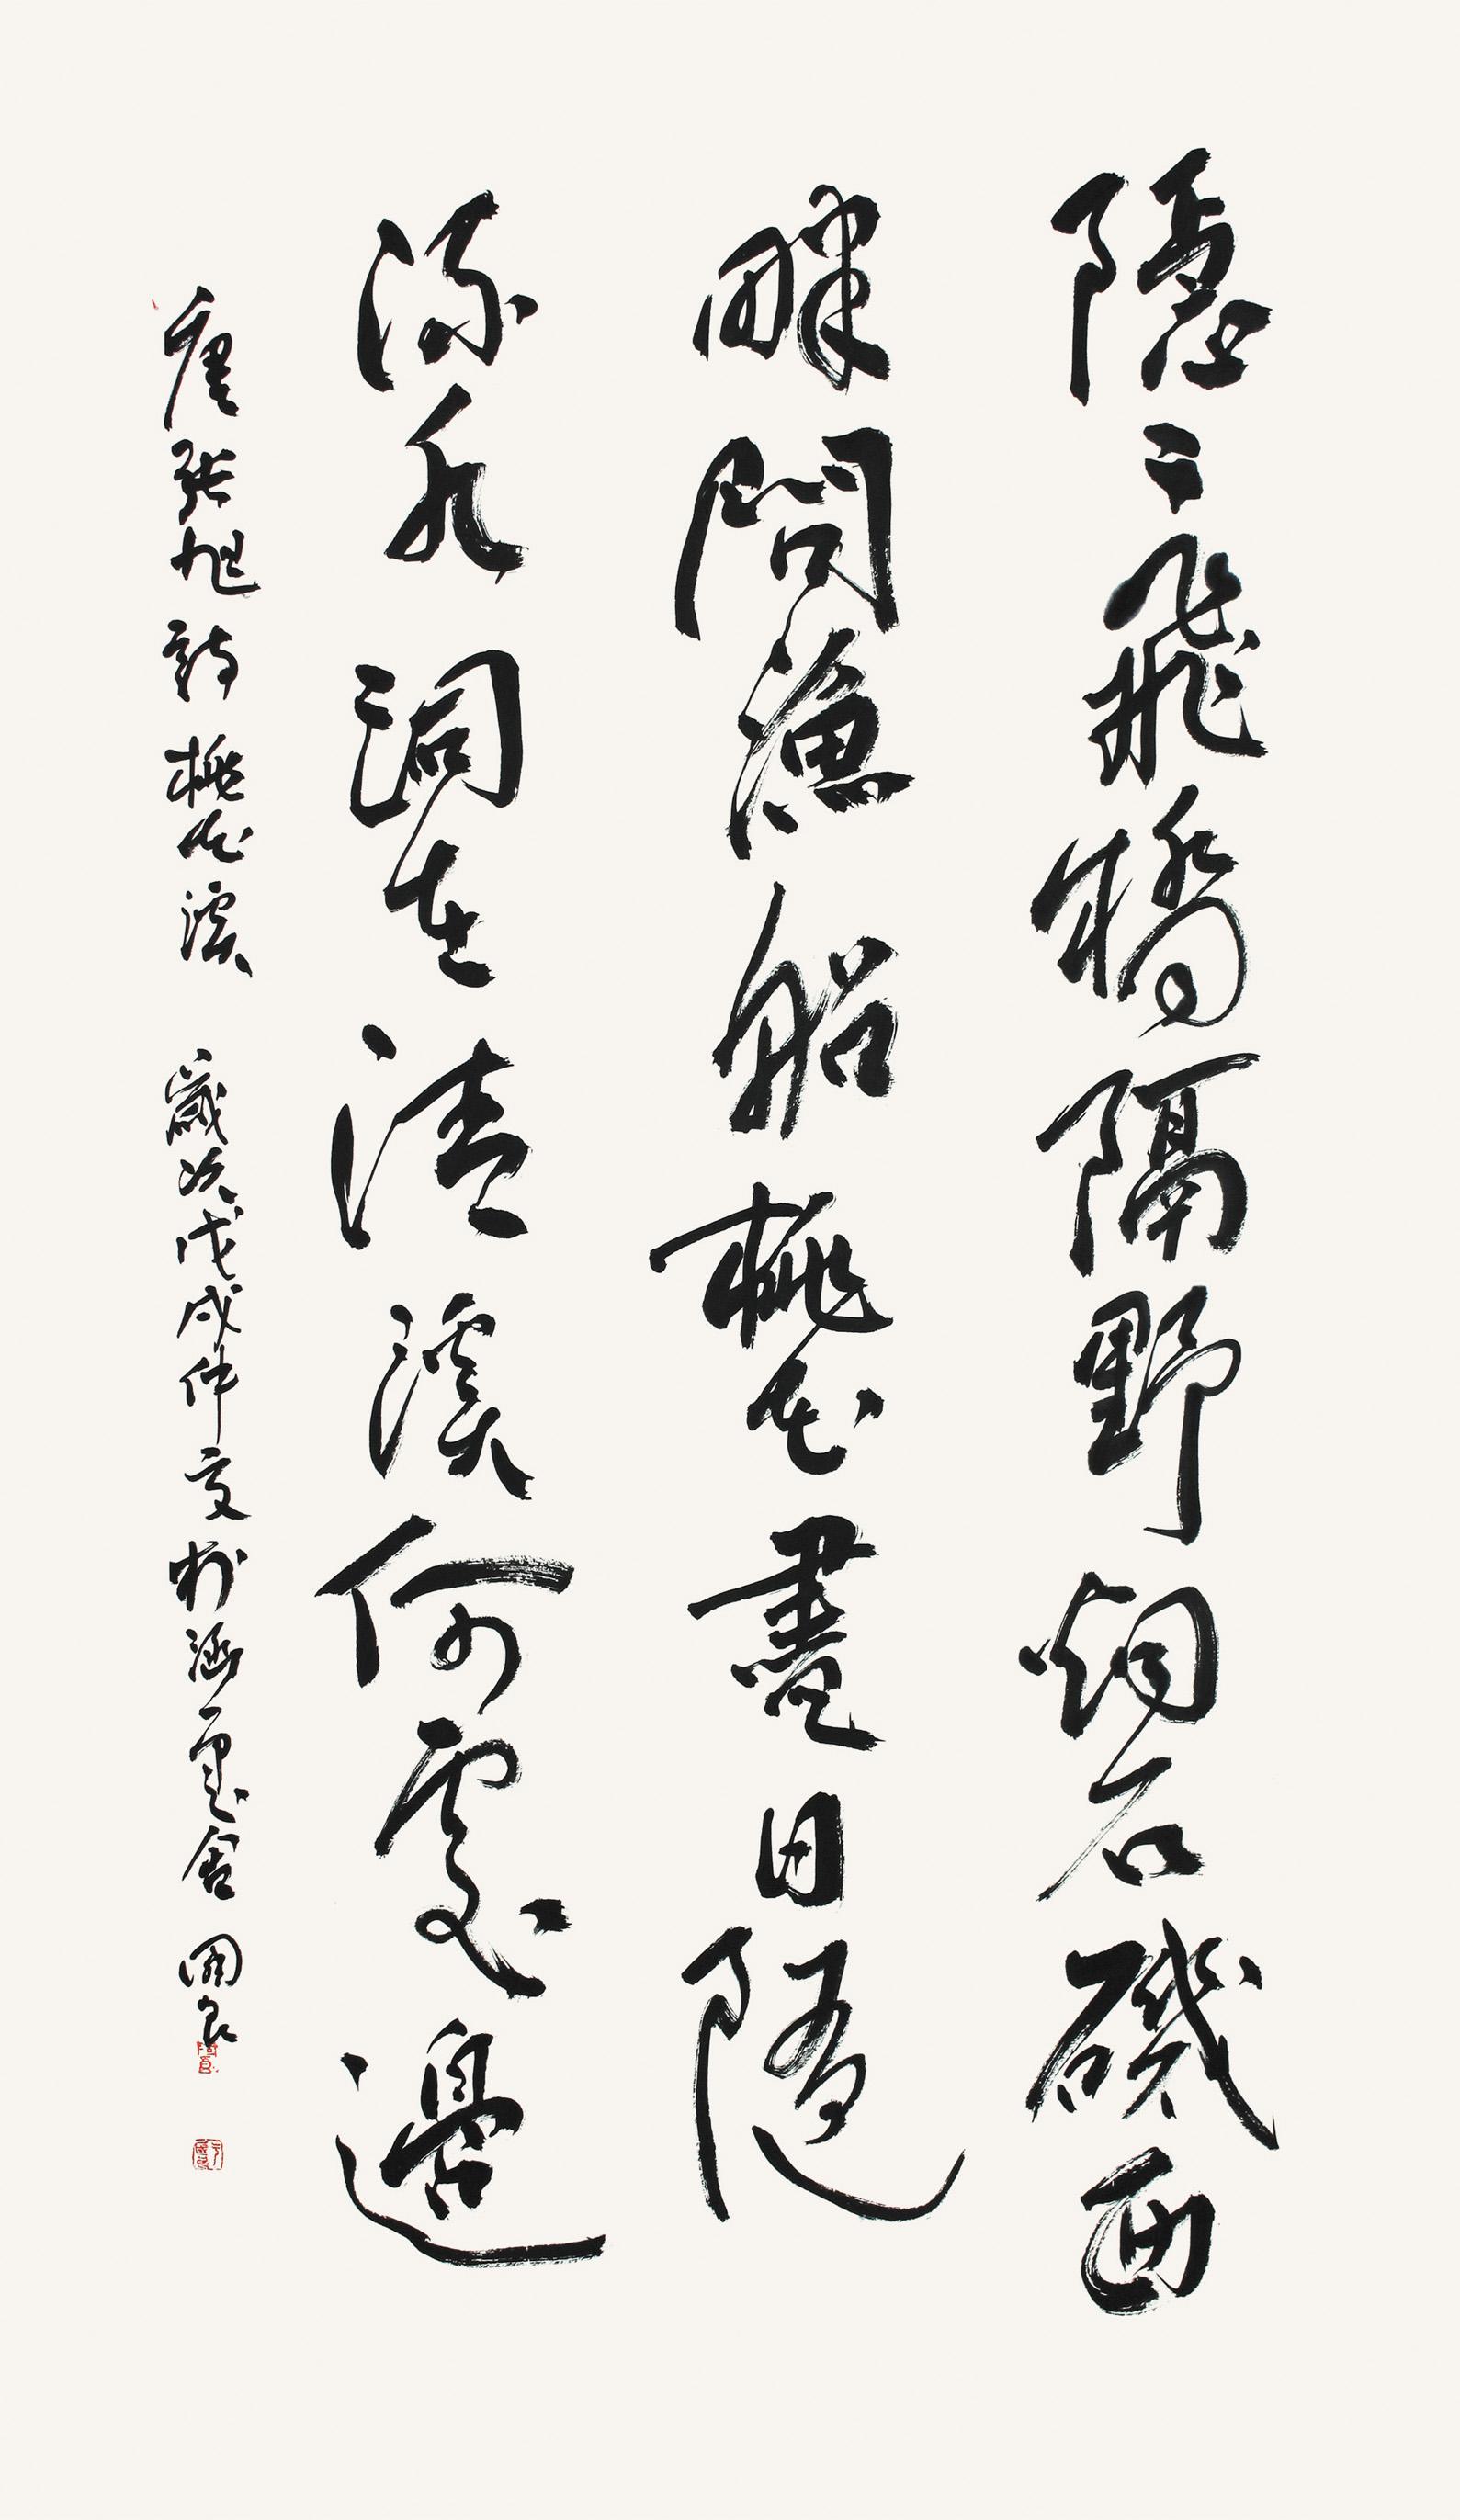 隱〻飛橋隔野煙石磯西
畔問漁船桃花盡日隨
流水洞在清溪何處邊
唐張旭詩桃花溪 歲次戊戌仲夏於涵墨舍 國良